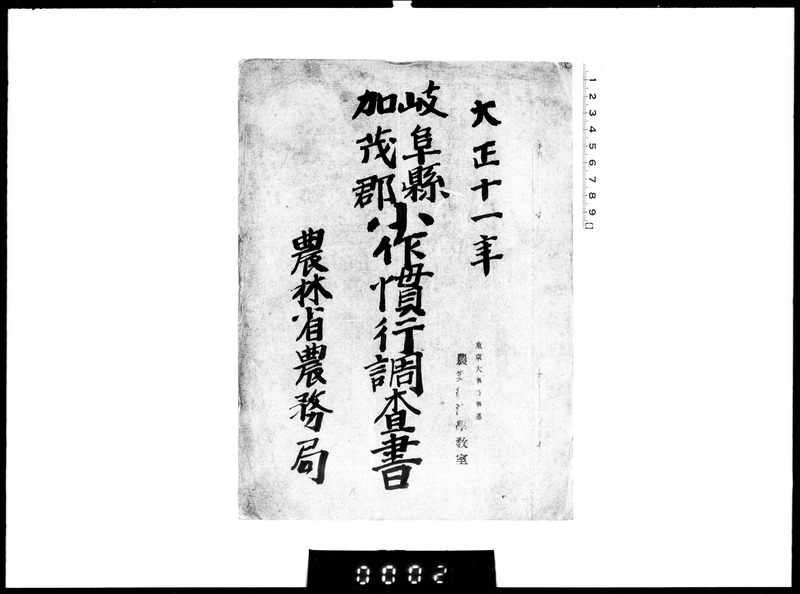 大正十一年
岐阜縣
加茂郡
小作慣行調査書
農林省農務局
東京大
農 學教室
1 2 3 4 5 6 7 8 9
0002